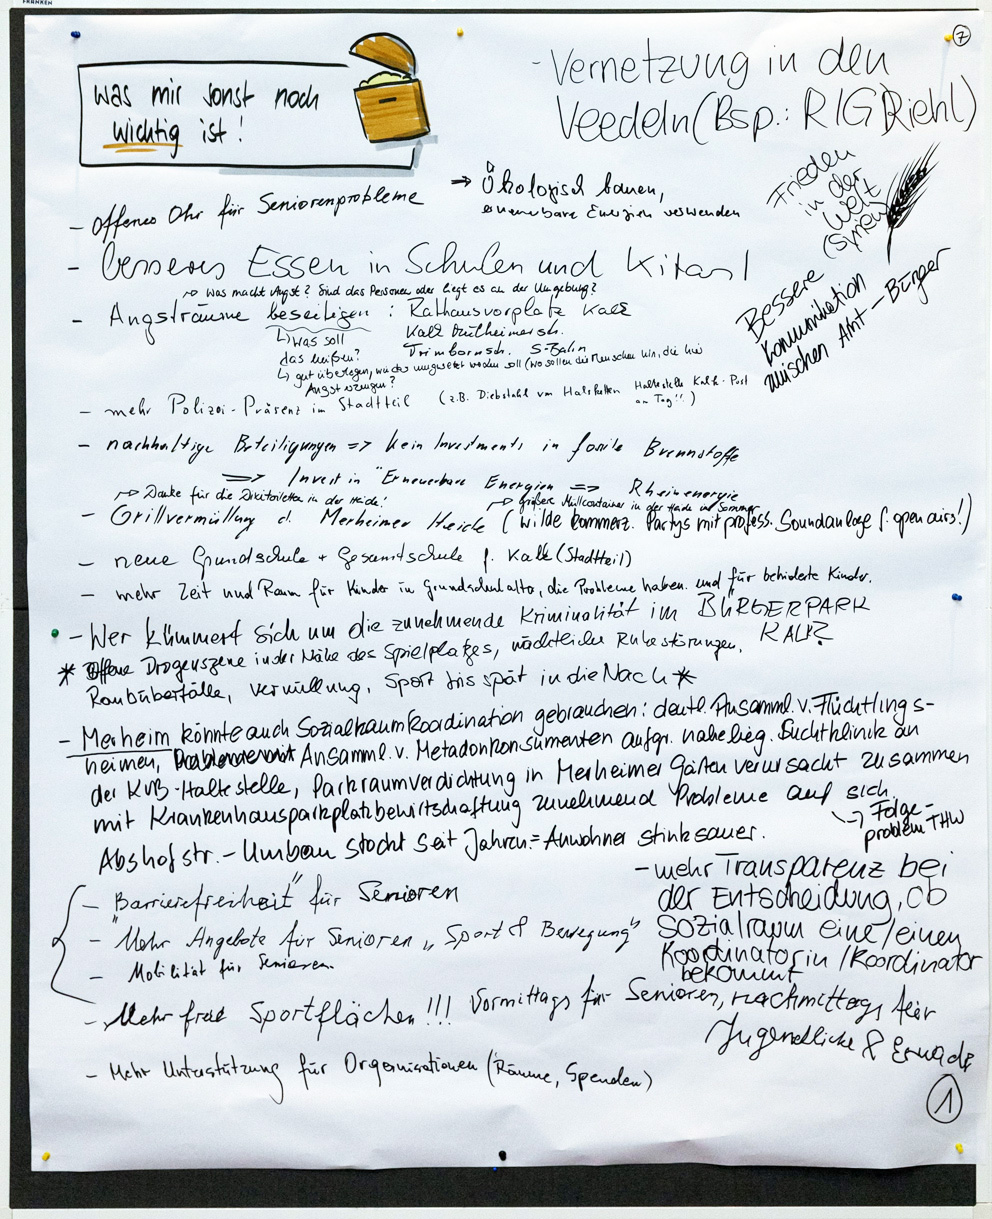 FRANKEN
7
was mir sonst noch
wichtig ist!
- Vernetzung in den
Veedeln (Bsp.: RIG Riehl)
→ Ökologisch bauen,
erneuerbare Energien verwenden
Frieden
in der
Welt
- offenes Ohr für Seniorenprobleme
- besseres Essen in Schulen und Kitas!
Bessere
Kommunikation
zwischen Amt – Bürger
→ Was macht Angst? Sind das Personen oder liegt es an der Umgebung?
- Angsträume beseitigen: Rathausvorplatz Kalk
↳ Was soll
das heißen?
Kalk Mülheimerstr.
Trimbornstr. S-Bahn
↳ gut überlegen, wie das umgesetzt werden soll (wo sollen die Menschen hin, die hier
Angst erzeugen?
- mehr Polizei-Präsenz im Stadtteil (z.B. Diebstahl von Halsketten Haltestelle Kalk-Post
am Tag!!)
- nachhaltige Beteiligungen => kein Investments in fossile Brennstoffe
=> Invest in "Erneuerbare Energien => Rheinenergie
→ Danke für die Dixitoiletten in der Heide!
→ größere Müllcontainer in der Heide im Sommer
- Grillvermüllung d. Merheimer Heide (wilde kommerz. Partys mit profess. Soundanlage f. open airs!)
- neue Grundschule + Gesamtschule f. Kalk (Stadtteil)
- mehr Zeit und Raum für Kinder in Grundschulalter, die Probleme haben. und für behinderte Kinder.
- Wer kümmert sich um die zunehmende Kriminalität im BÜRGERPARK
KALK?
* Offene Drogenszene in der Nähe des Spielplatzes, nächtliche Ruhestörungen,
Raubüberfälle, Vermüllung, Sport bis spät in die Nach *
- Merheim könnte auch Sozialraumkoordination gebrauchen: deutl. Ansamml. v. Flüchtlings-
heimen, Ansamml. v. Metadonkonsumenten aufgr. nahelieg. Suchtklinik an
der KVB-Haltestelle, Parkraumverdichtung in Merheimer Gärten verursacht zusammen
mit Krankenhausparkplatzbewirtschaftung zunehmend Probleme auf sich.
↳ Folge-
problem THW
Abshofstr. – Umbau stockt seit Jahren = Anwohner stinksauer.
- mehr Transparenz bei
der Entscheidung, ob
Sozialraum eine/einen
Koordinatorin/Koordinator
bekommt
- "Barrierefreiheit" für Senioren
- Mehr Angebote für Senioren „Sport & Bewegung"
- Mobilität für Senioren.
- Mehr freie Sportflächen!!! Vormittags für Senioren, nachmittags für
Jugendliche &
- Mehr Unterstützung für Organisationen (Räume, Spenden)
1